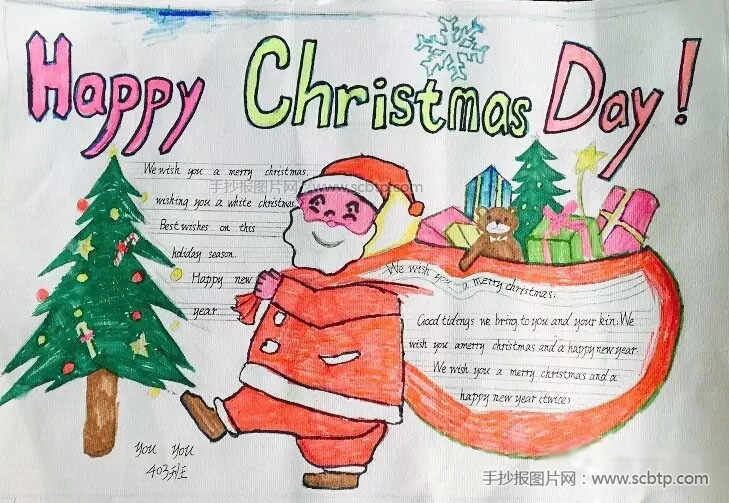 Happy Christmas Day!
We wish you a merry christmas,
手抄报图片网：www.scbtp.com
wishing you a white christmas
Best wishes on this
holiday season.
Happy new
year
We wish you a merry christmas,
Good tidings we bring to you and your kin; We
wish you amerry christmas and a happy new year.
We wish you a merry christmas and a
happy new year (twice)
you you
403班
手抄报图片网：www.scbtp.com